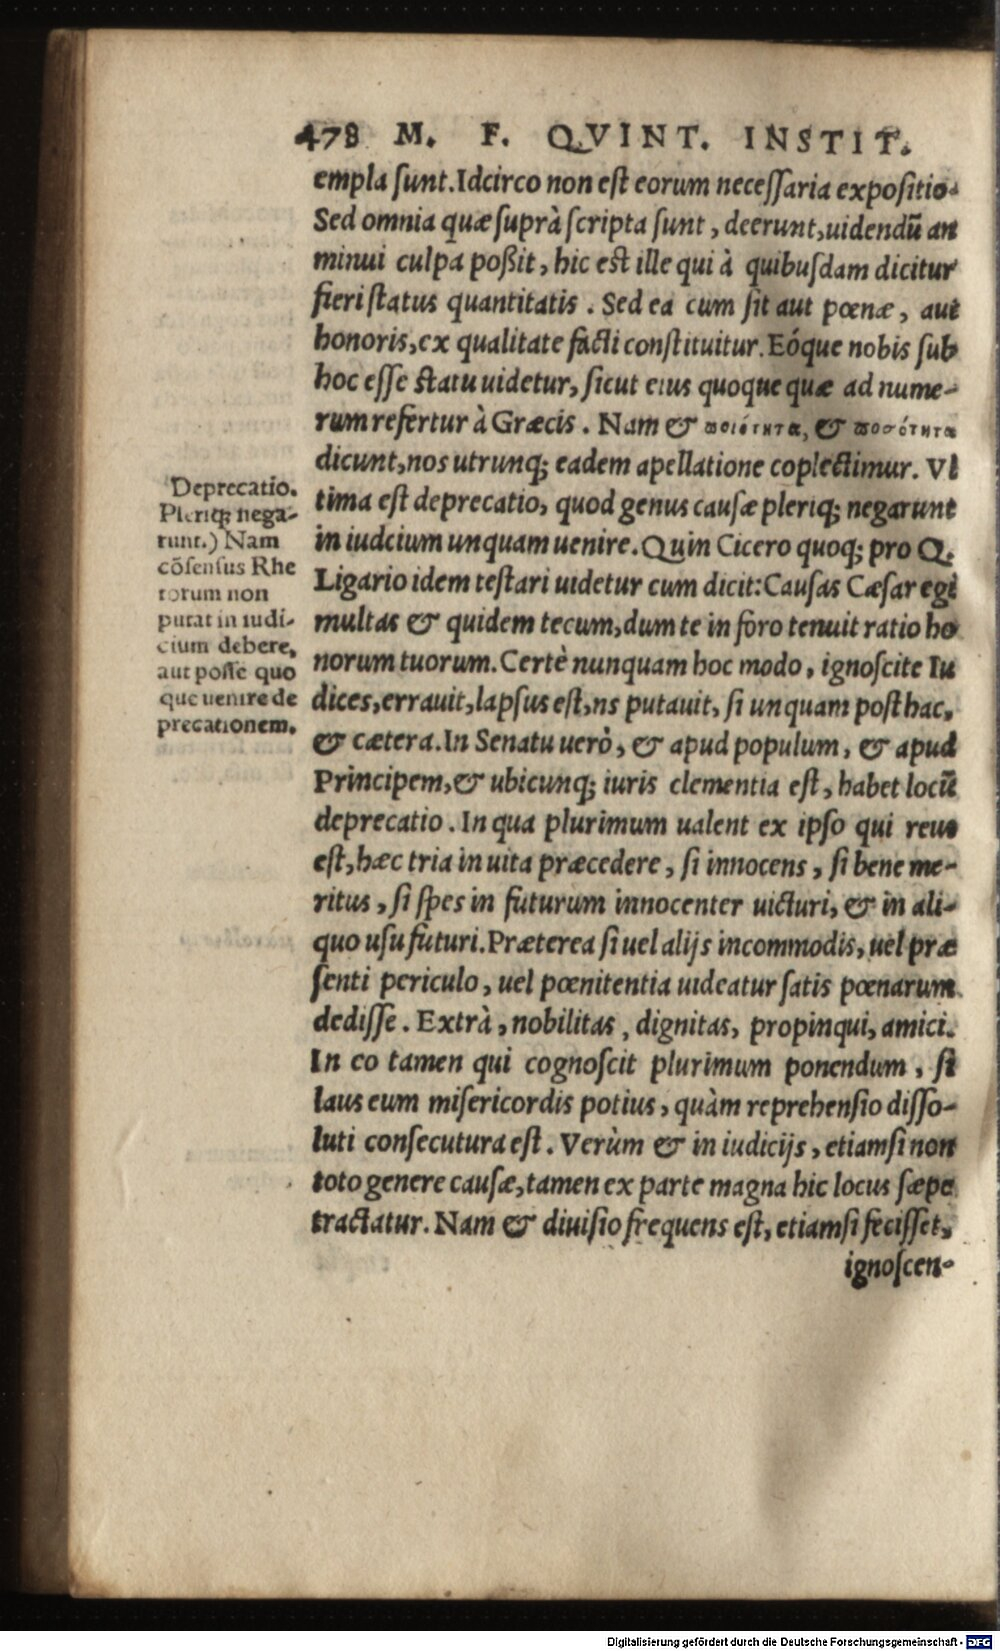 478 M. F. QVINT. INSTIT.
empla ſunt. Idcirco non eſt eorum neceſſaria expoſitio.
Sed omnia quæ ſuprà ſcripta ſunt, deerunt, uidendū an
minui culpa poßit, hic eſt ille qui à quibuſdam dicitur
fieri ſtatus quantitatis. Sed ea cum ſit aut pœnæ, aut
honoris, ex qualitate facti conſtituitur. Eóque nobis ſub
hoc eſſe ſtatu uidetur, ſicut eius quoque quæ ad nume-
rum refertur à Græcis. Nam & ποιότητα, & ποσότητα
dicunt, nos utrunq; eadem apellatione coplectimur. Vl
tima eſt deprecatio, quod genus cauſæ pleriq; negarunt
in iudcium unquam uenire. Quin Cicero quoq; pro Q.
Ligario idem teſtari uidetur cum dicit: Cauſas Cæſar egi
multas & quidem tecum, dum te in foro tenuit ratio ho
norum tuorum. Certè nunquam hoc modo, ignoſcite Iu
dices, errauit, lapſus eſt, ns putauit, ſi unquam poſt hac,
& cætera. In Senatu uerò, & apud populum, & apud
Principem, & ubicunq; iuris clementia eſt, habet locū
deprecatio. In qua plurimum ualent ex ipſo qui reus
eſt, hæc tria in uita præcedere, ſi innocens, ſi bene me-
ritus, ſi ſpes in futurum innocenter uicturi, & in ali-
quo uſu futuri. Præterea ſi uel alijs incommodis, uel præ
ſenti periculo, uel pœnitentia uideatur ſatis pœnarum
dediſſe. Extrà, nobilitas, dignitas, propinqui, amici.
In eo tamen qui cognoſcit plurimum ponendum, ſi
laus eum miſericordis potius, quàm reprehenſio diſſo-
luti conſecutura eſt. Verùm & in iudicijs, etiamſi non
toto genere cauſæ, tamen ex parte magna hic locus ſæpe
tractatur. Nam & diuiſio frequens eſt, etiamſi feciſſet,
ignoſcen-
Deprecatio.
Pleriq; nega-
runt.) Nam
cōſenſus Rhe
torum non
putat in iudi-
cium debere,
aut poſſe quo
que uenire de
precationem.
Digitalisierung gefördert durch die Deutsche Forschungsgemeinschaft - DFG